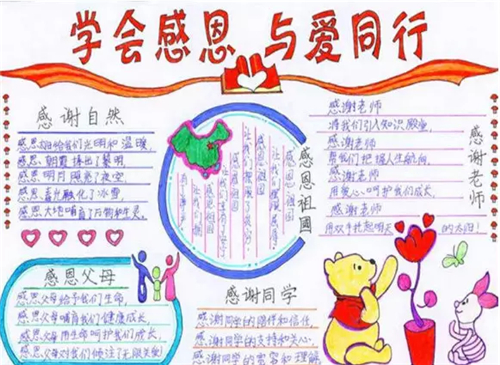 学会感恩 与爱同行
感谢自然
感恩太阳给我们光明和温暖,
感恩朝霞捧出黎明
感恩明月照亮夜空
感恩春光融化了冰雪,
感恩大地哺育了万物和生灵。
感恩父母
感恩父母给予我们生命,
感恩父母哺育我们健康成长,
感恩父母用生命呵护我们成长,
感恩父母对我们倾注了无限关爱!
感恩祖国
感谢同学
感谢同学的陪伴和信任,
感谢同学的支持和关心,
感谢同学的宽容和理解
感谢老师
感谢老师
将我们引入知识殿堂,
感谢老师
帮我们把握人生航向,
感谢老师
用爱心呵护我们成长,
感谢老师
用双手托起明天 的太阳!